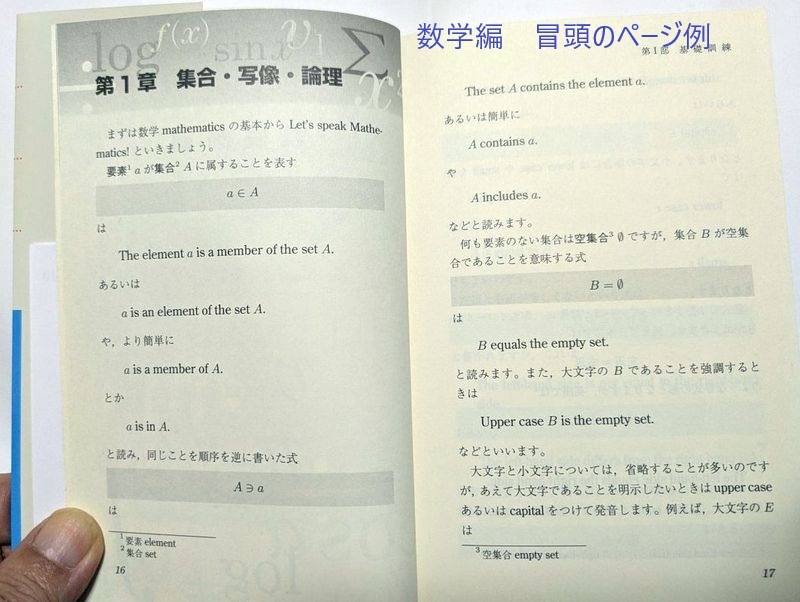 数学編 冒頭のページ例
log f(x) sin x √1 Σ
第1章 集合・写像・論理
まずは数学 mathematics の基本から Let's speak Mathe-
matics! といきましょう。
要素¹ a が集合² A に属することを表す
a ∈ A
は
The element a is a member of the set A.
あるいは
a is an element of the set A.
や，より簡単に
a is a member of A.
とか
a is in A.
と読み，同じことを順序を逆に書いた式
A ∋ a
は
¹要素 element
²集合 set
16
第Ⅰ部 基礎訓練
The set A contains the element a.
あるいは簡単に
A contains a.
や
A includes a.
などと読みます。
何も要素のない集合は空集合³ ∅ ですが，集合 B が空集
合であることを意味する式
B = ∅
は
B equals the empty set.
と読みます。また，大文字の B であることを強調すると
きは
Upper case B is the empty set.
などといいます。
大文字と小文字については，省略することが多いのです
が，あえて大文字であることを明示したいときは upper case
あるいは capital をつけて発音します。例えば，大文字の E
は
³空集合 empty set
17